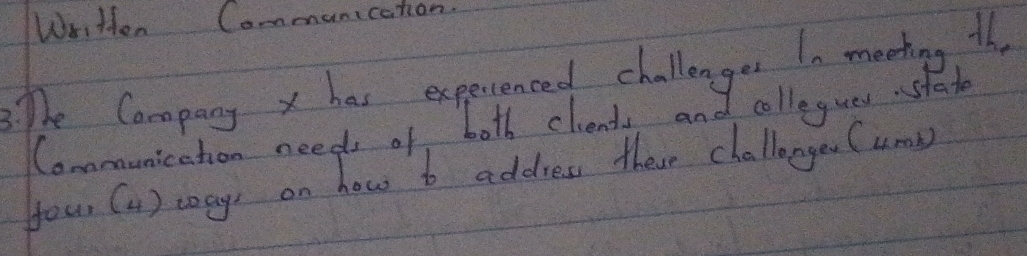 Written Communication.
3. The Company x has experienced challenges In meeting the
Communication needs of both clients and collegues. state
four (4) ways on how to address these challenges (4mks)